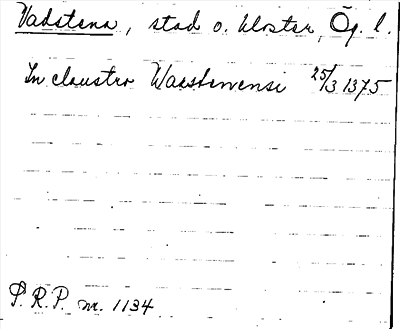 Vadstena, stad o. kloster, Ög. l.
In claustro Waestenensi 25/3 1375
P. R. P. nr. 1134